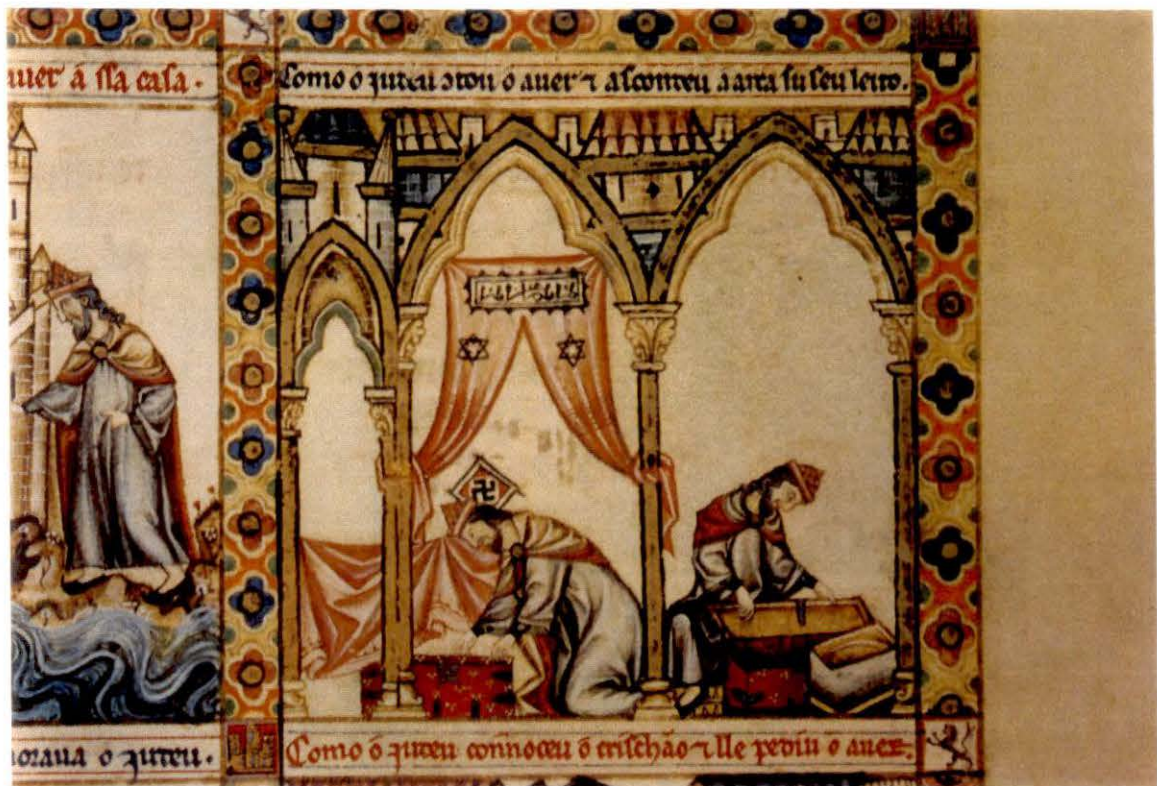 auer á ssa casa.
Como o juteu ↄtou o auer ⁊ ascondeu a arca su seu leito.
moraua o juteu.
Como o juteu connoceu o crischão ⁊ lle pediu o auer.